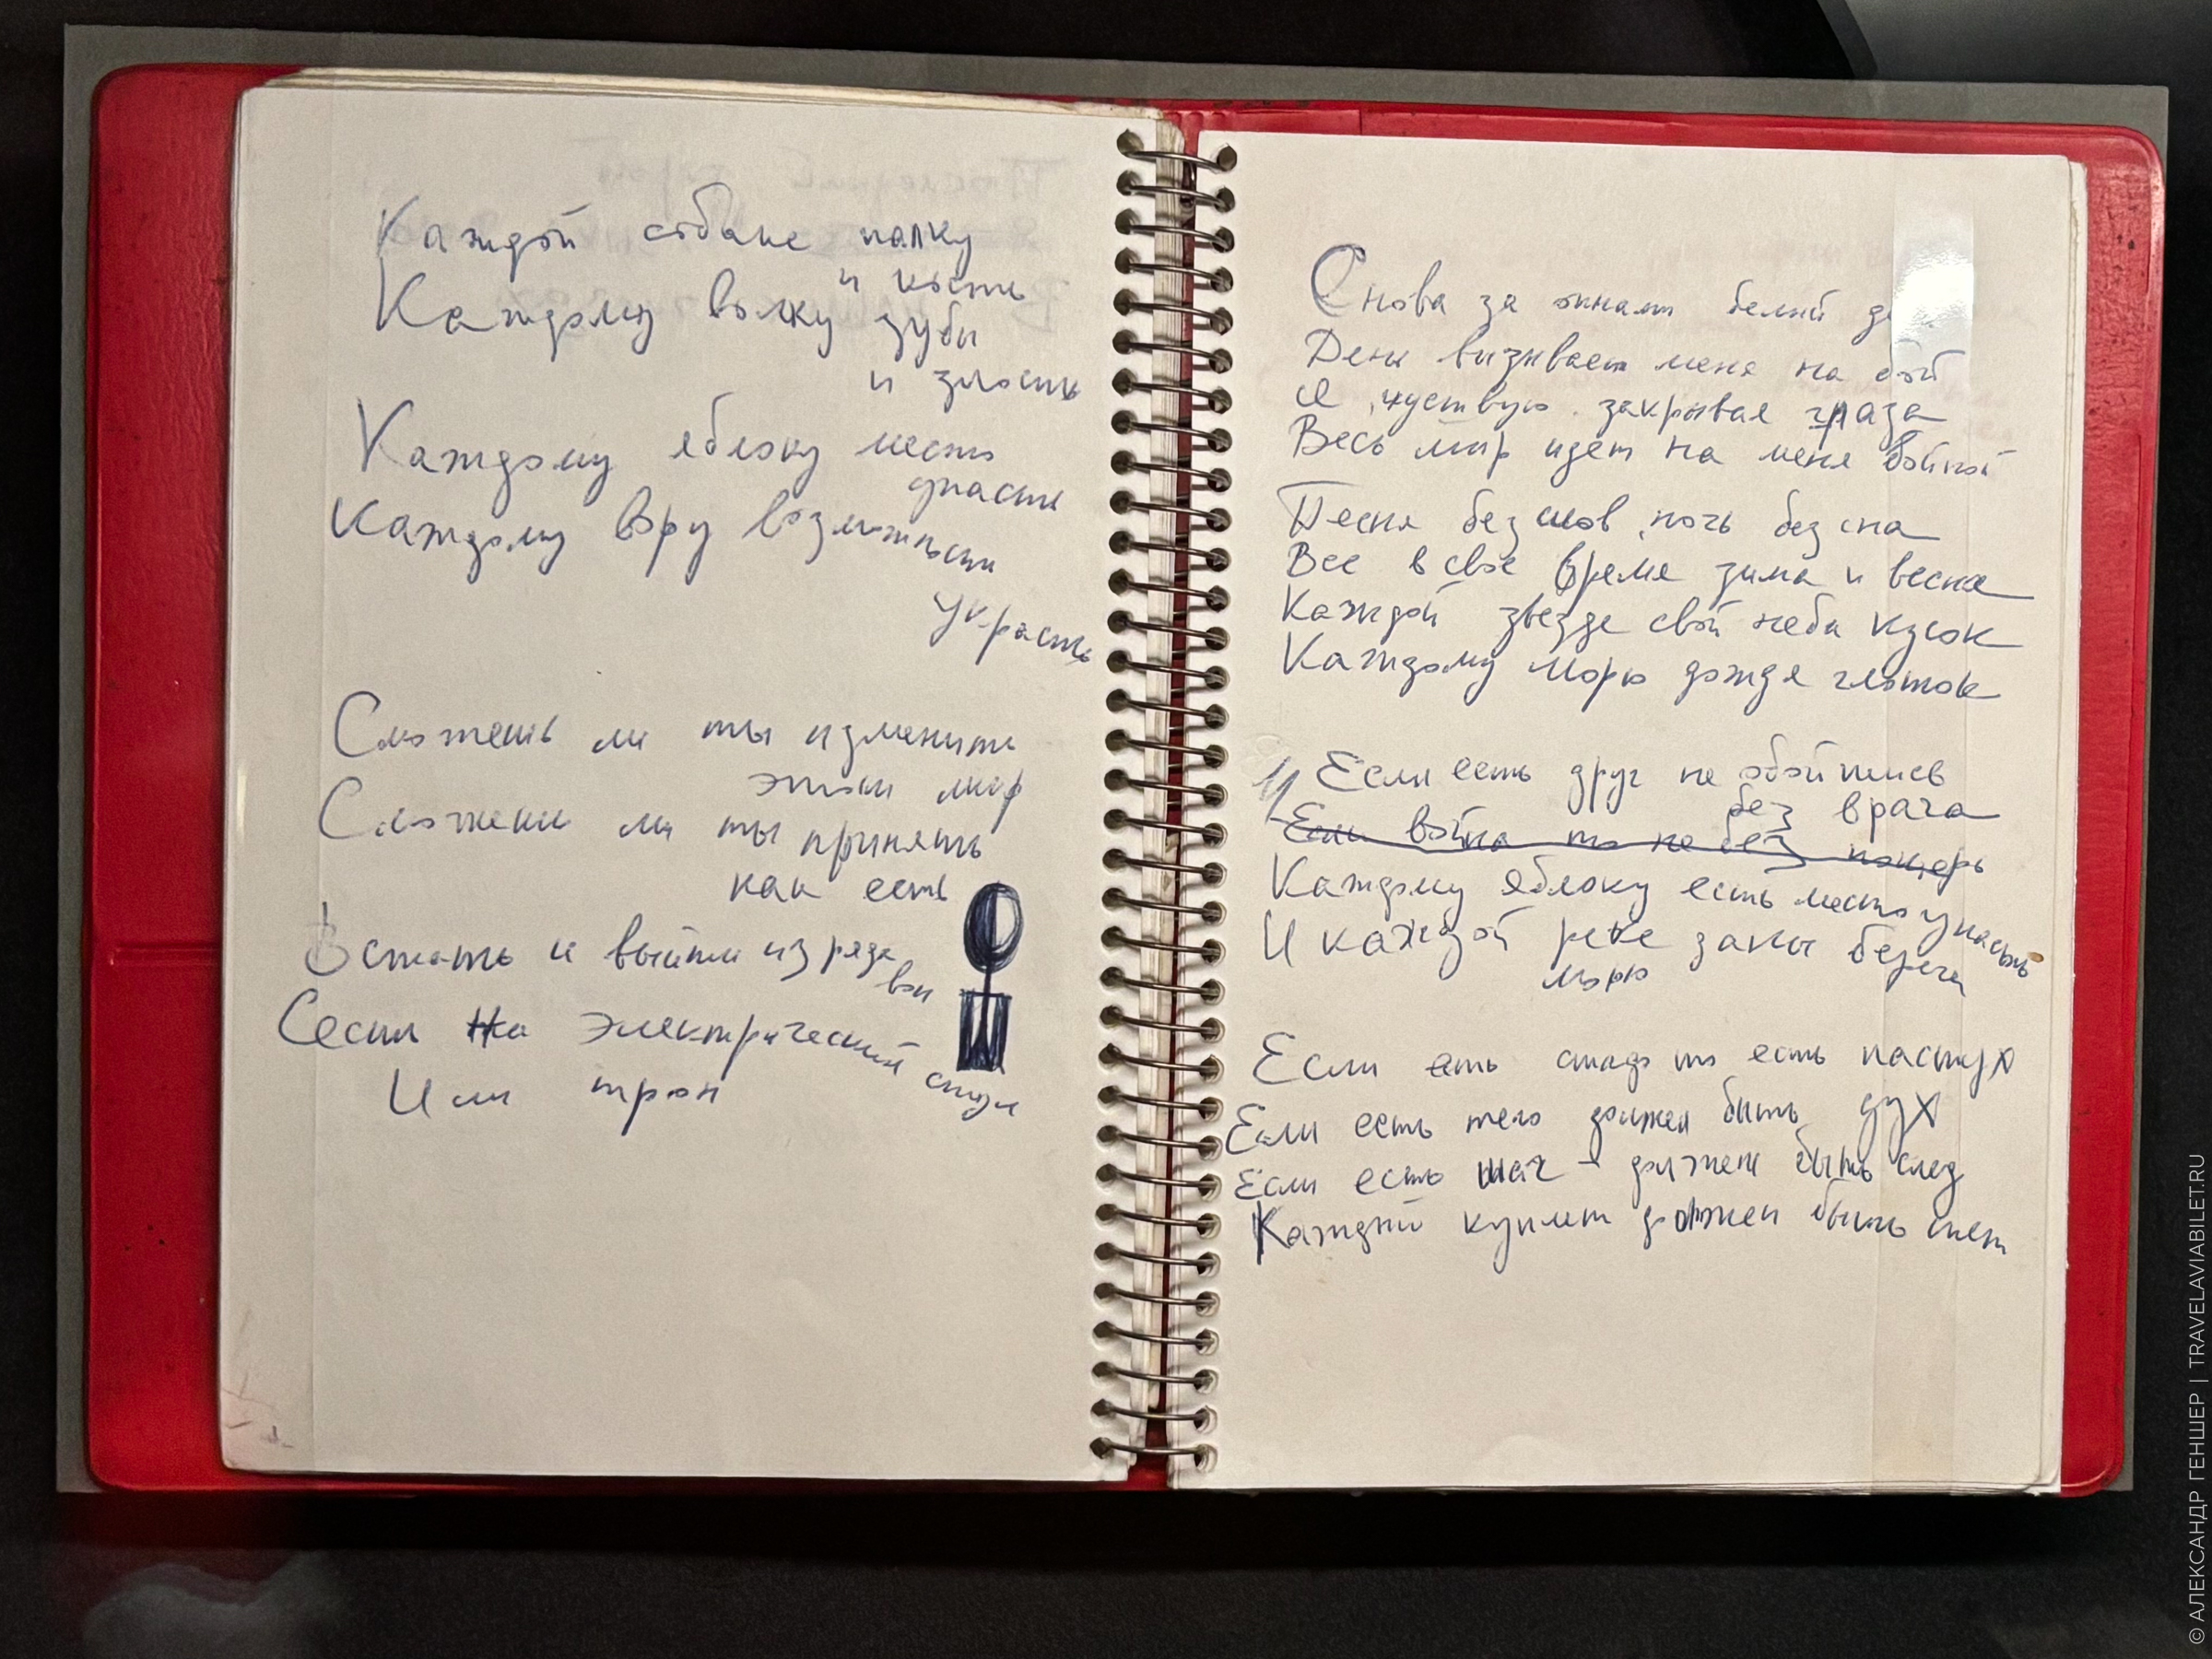 Каждой собаке палку
и кость
Каждому волку зубы
и злость
Каждому яблоку место
упасть
Каждому вору возможность
украсть
Сможешь ли ты изменить
этот мир
Сможешь ли ты принять
как есть
Встать и выйти из ряда
вон
Сесть на электрический
стул
Или трон
Снова за окнами белый
День вызывает меня на бой
Я чуствую закрывая глаза
Весь мир идет на меня войной
Песня без слов, ночь без сна
Все в свое время зима и весна
Каждой звезде свой неба кусок
Каждому морю дождя глоток
Если есть друг не обойтись
без врага
Если война то не без потерь
Каждому яблоку есть место упасть
И каждой реке даны берега
морю
Если есть стадо то есть пастух
Если есть тело должен быть дух
Если есть шаг - должен быть след
Каждый куплет должен быть спет
© АЛЕКСАНДР ГЕНШЕР | TRAVELAVIABILET.RU